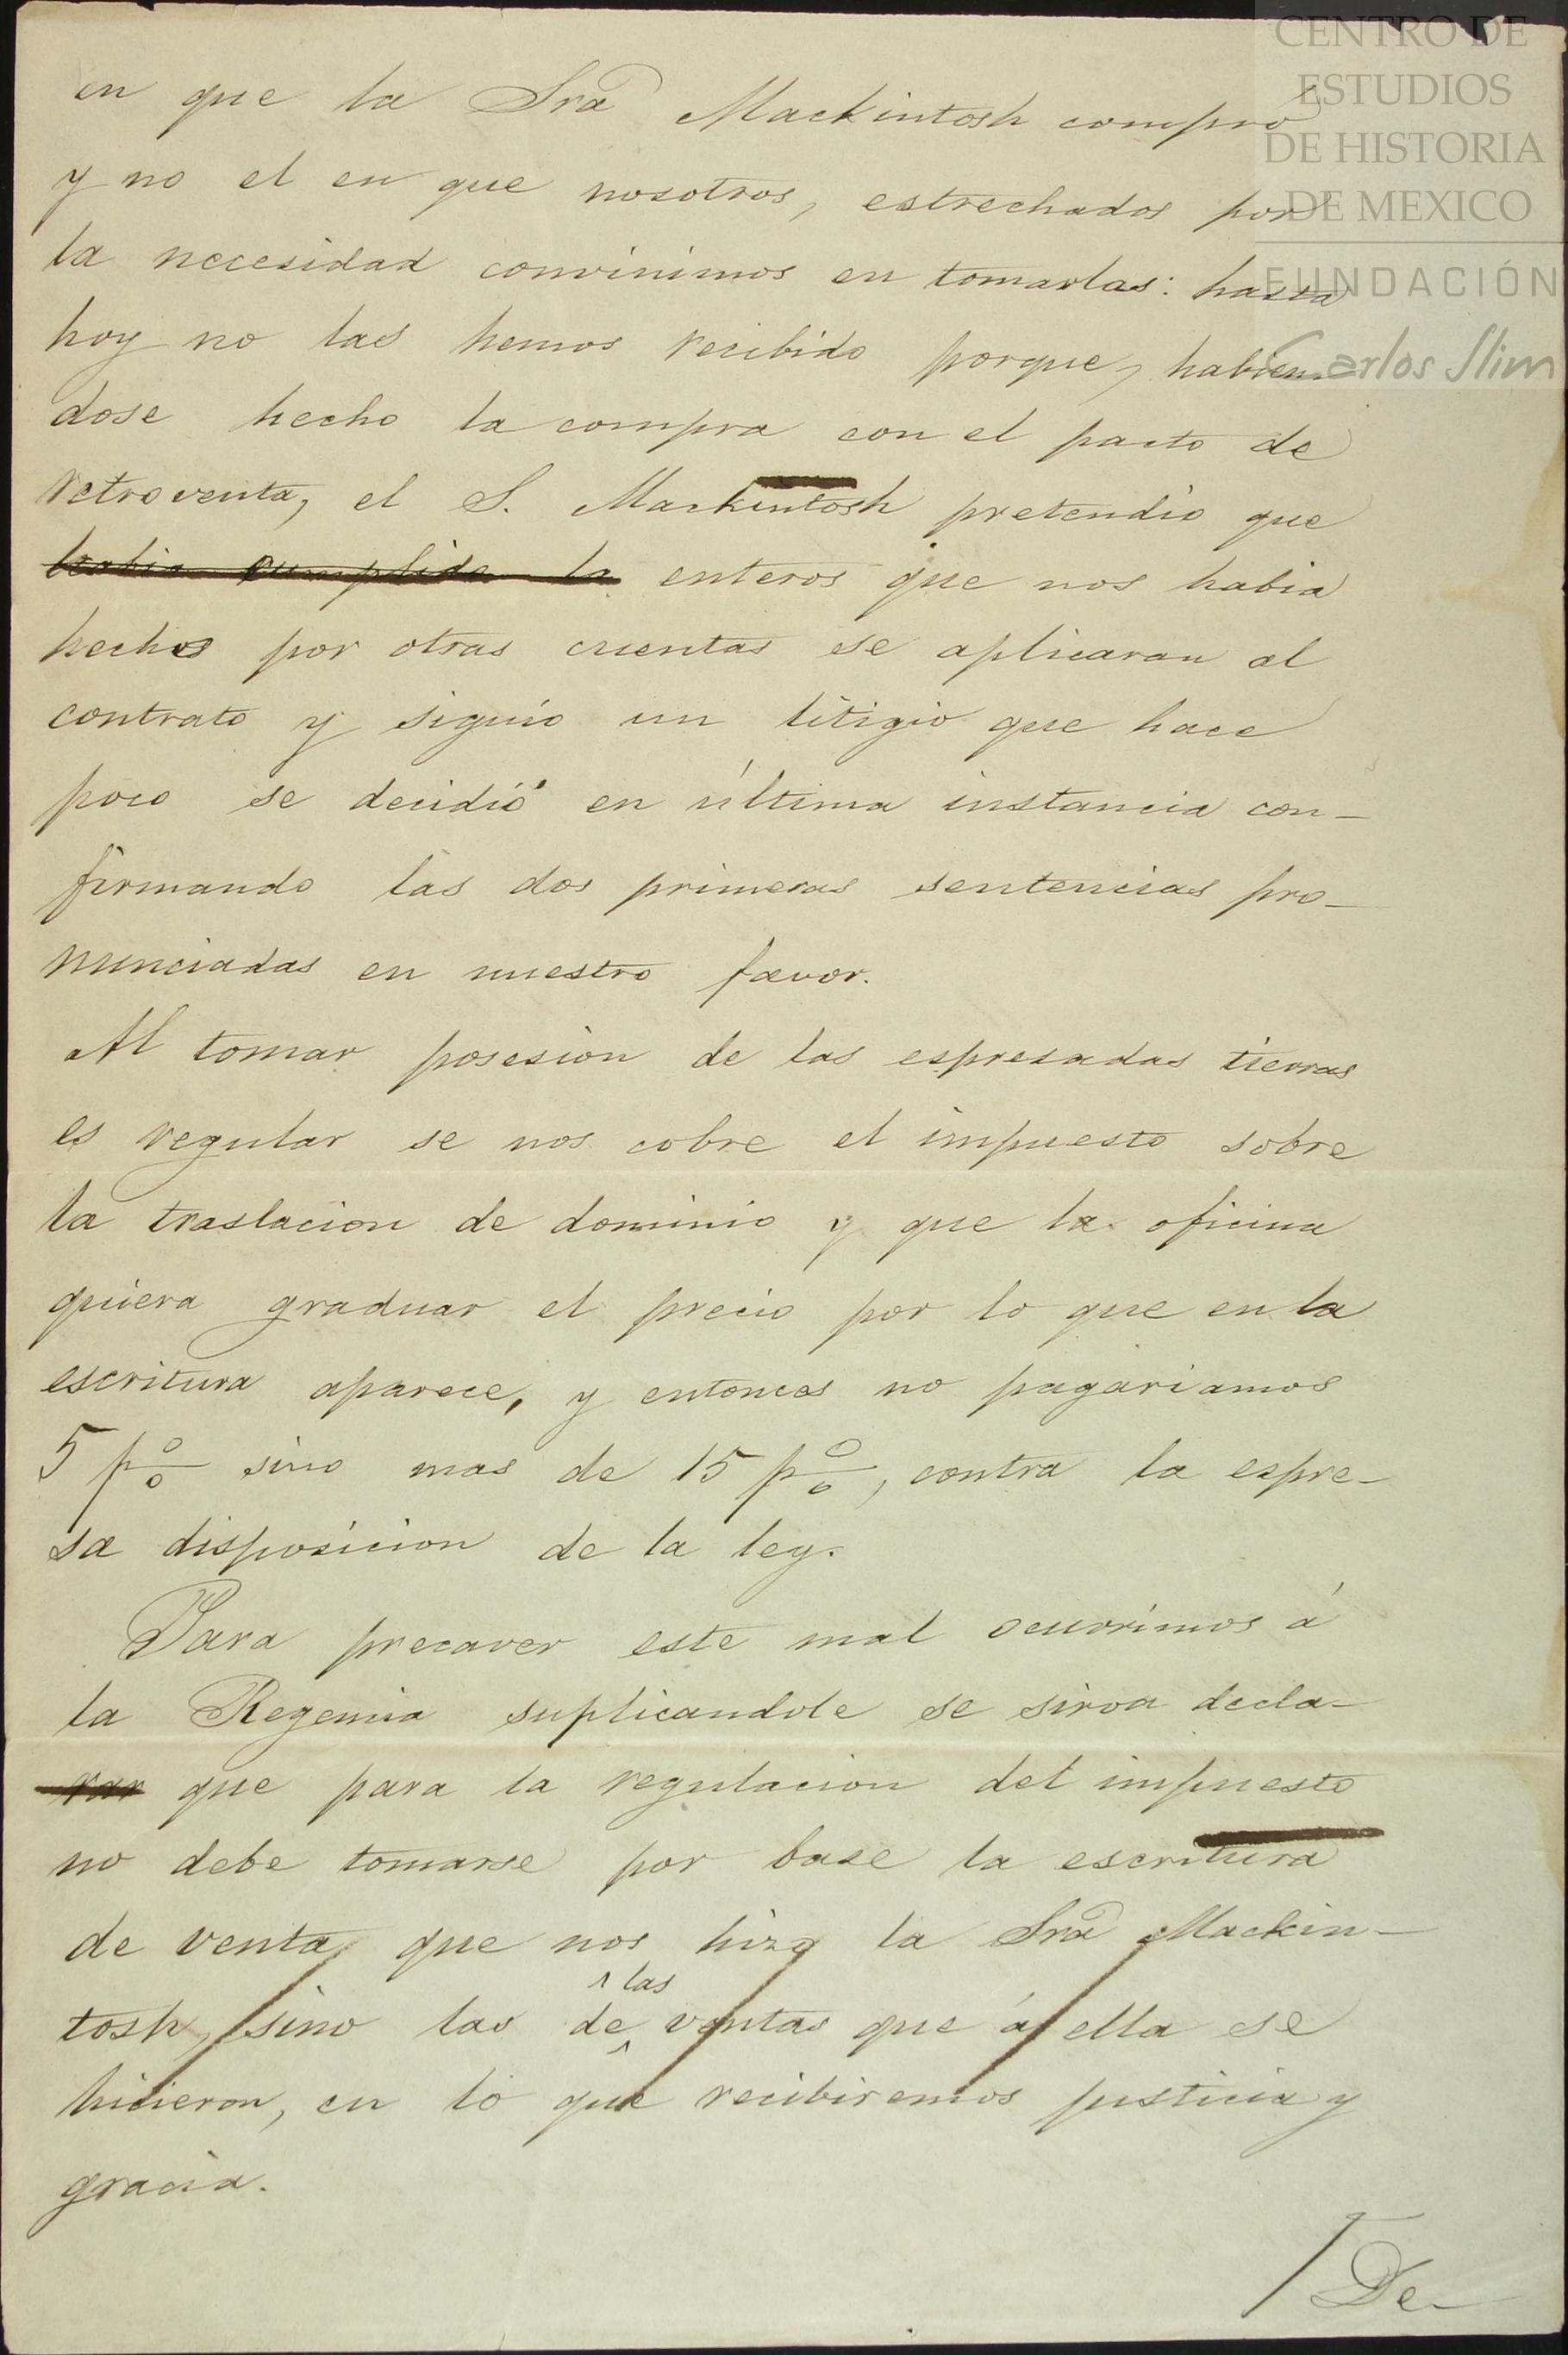 CENTRO DE
ESTUDIOS
DE HISTORIA
DE MEXICO
FUNDACIÓN
Carlos Slim
en que la Sra Mackintosh compró
y no el en que nosotros, estrechados por
la necesidad convinimos en tomarlas: hasta
hoy no las hemos recibido porque, habien-
dose hecho la compra con el pacto de
retroventa, el S. Mackintosh pretendio que
habia cumplido la enteros que nos habia
hechos por otras cuentas se aplicaran al
contrato y siguio un litigio que hace
poco se decidió en última instancia con-
firmando las dos primeras sentencias pro-
nunciadas en nuestro favor.
Al tomar posesion de las espresadas tierras
es regular se nos cobre el impuesto sobre
la traslacion de dominio y que la oficina
quiera graduar el precio por lo que en la
escritura aparece, y entonces no pagariamos
5 p% sino mas de 15 p%, contra la espre-
sa disposicion de la ley.
Para precaver este mal ocurrimos á
la Regencia suplicandole se sirva decla-
rar que para la regulacion del impuesto
no debe tomarse por base la escritura
de venta que nos hizo la Sra Mackin-
tosh, sino las de las ventas que á ella se
hicieron, en lo que recibiremos justicia y
gracia.
De-